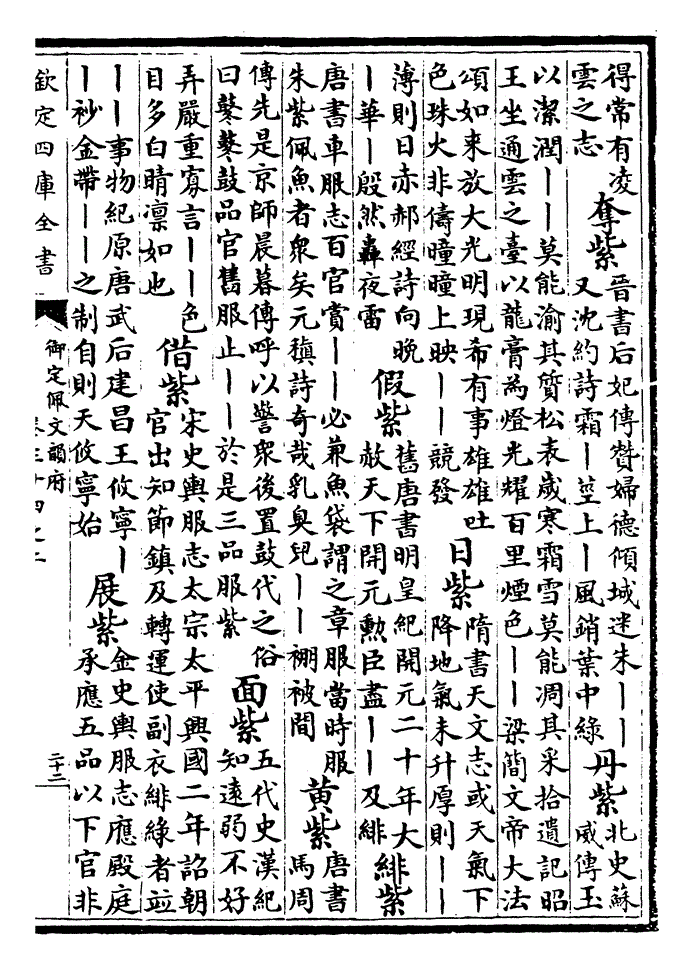 得常有凌
雲之志
奪紫
晉書后妃傳贊婦德傾城迷朱丨丨
又沈約詩霜丨莖上丨風銷葉中緑
丹紫
北史蘇
威傳玉
以潔潤丨丨莫能渝其質松表歲寒霜雪莫能凋其采拾遺記昭
王坐通雲之臺以龍膏為燈光耀百里煙色丨丨梁簡文帝大法
頌如来放大光明現希有事雄雄吐
色珠火非儔曈曈上映丨丨競發
日紫
隋書天文志或天氣下
降地氣未升厚則丨丨
薄則日赤郝經詩向晚
丨華丨殷然轟夜雷
假紫
舊唐書明皇紀開元二十年大
赦天下開元勲臣盡丨丨及緋
緋紫
唐書車服志百官賞丨丨必兼魚袋謂之章服當時服
朱紫佩魚者衆矣元稹詩奇哉乳臭兒丨丨裯被間
黄紫
唐書
馬周
傳先是京師晨暮傳呼以警衆後置鼓代之俗
曰鼕鼕鼓品官舊服止丨丨於是三品服紫
面紫
五代史漢紀
知遠弱不好
弄嚴重寡言丨丨色
目多白睛凛如也
借紫
宋史輿服志太宗太平興國二年詔朝
官出知節鎮及轉運使副衣緋緑者竝
丨丨事物紀原唐武后建昌王攸寧丨
丨衫金帶丨丨之制自則天攸寧始
展紫
金史輿服志應殿庭
承應五品以下官非
欽定四庫全書
御定佩文韻府
卷三十四之二
二十二